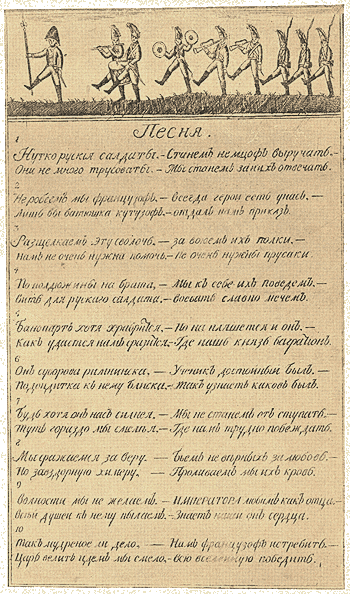 Песня.
1
Нутко руския салдаты.- Станемъ немцофъ выручать.
Они не много трусоваты.- Мы станемъ за нихъ отвечать.
2
Неробеем мы французофъ.- всегда герои есть унасъ.-
Лишь бы батюшка кутузофъ.- отдалъ намъ приказъ.
3
Разщелкаемъ эту сволочь.- за воюемъ ихъ полки.-
Намъ не очень нужна помочь.- Не очень нужны прусаки.
4
По полдюжины на брата,- Мы к себе ихъ поведемъ.-
Битъ для рускаго салдата.- восьмить славно мечемъ.
5
Банопарте хотя храбрится.- Но на пляшется и онъ.-
Какъ удастся намъ сразится.- Где нашъ князь багратионъ.
6
Онъ суворова римнинска.- Ученикъ достойный былъ.-
Подойди тка к нему блиска.- такъ узнаешь каковъ былъ.
7
Будь хотя онъ насъ силнея.- Мы не станемъ отъ ступать.-
Тутъ гораздо мы смелея.- Где намъ трудно побеждать.
8
Мы сражаемся за веру.- Бьемъ не верныхъ за любовь.
Но за вздорную химеру.- Проливаемъ мы ихъ кровь.
9
Волности мы не желаемъ.- ИМПЕРАТОРА любимъ какъ отца.
душей къ нему пылаемъ.- Знаетъ наши онъ сердца.
10
такъ мудреное ли дело.- Намъ французофъ истребить.-
Царь велитъ идемъ мы смело.- всю вселенную победить.